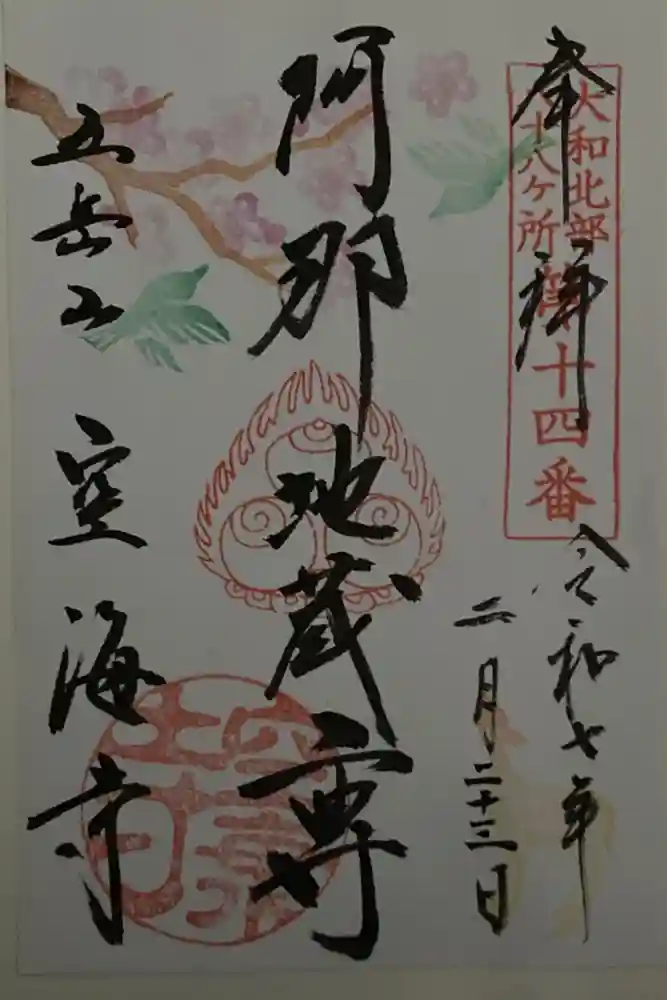 奉拝
大和北部
八十八ヶ所
第十四番
令和七年
二月二十三日
阿那地蔵尊
五岳山 空海寺